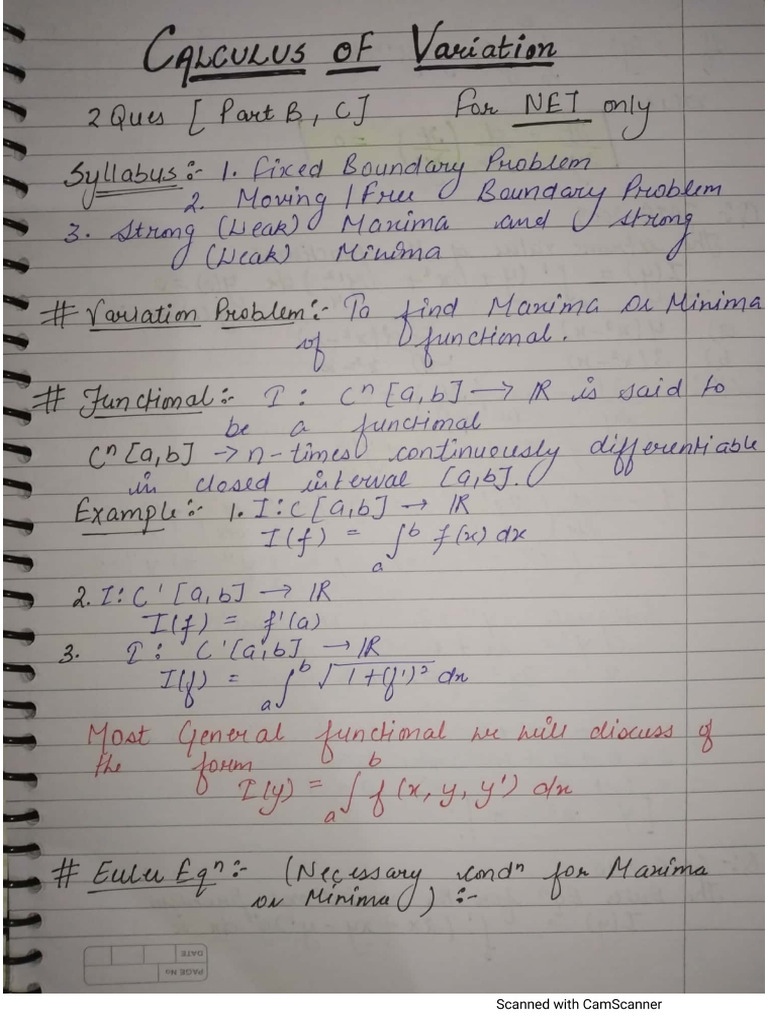 CALCULUS OF Variation
2 Ques [ Part B, C]   For NET only
Syllabus :- 1. Fixed Boundary Problem
2. Moving / Free Boundary Problem
3. Strong (Weak) Maxima and strong
(Weak) Minima
# Variation Problem :- To find Maxima or Minima
of functional.
# Functional :- I : Cⁿ [a,b] → IR is said to
be a functional
Cⁿ [a,b] → n-times continuously differentiable
in closed interval [a,b].
Example :- 1. I : C [a,b] → IR
I(f) = ∫_a^b f(x) dx
2. I : C' [a,b] → IR
I(f) = f'(a)
3. I : C' [a,b] → IR
I(f) = ∫_a^b √(1+(f')²) dx
Most General functional we will discuss of
the form
I(y) = ∫_a^b f (x, y, y') dx
# Euler Eqⁿ :- (Necessary condⁿ for Maxima
or Minima) :-
PAGE No
DATE
Scanned with CamScanner